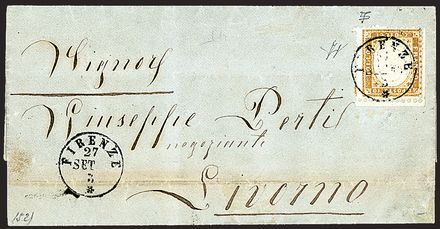 FIRENZE
Signor
Giuseppe Pertis
negoziante
FIRENZE
27
SET
3
Livorno